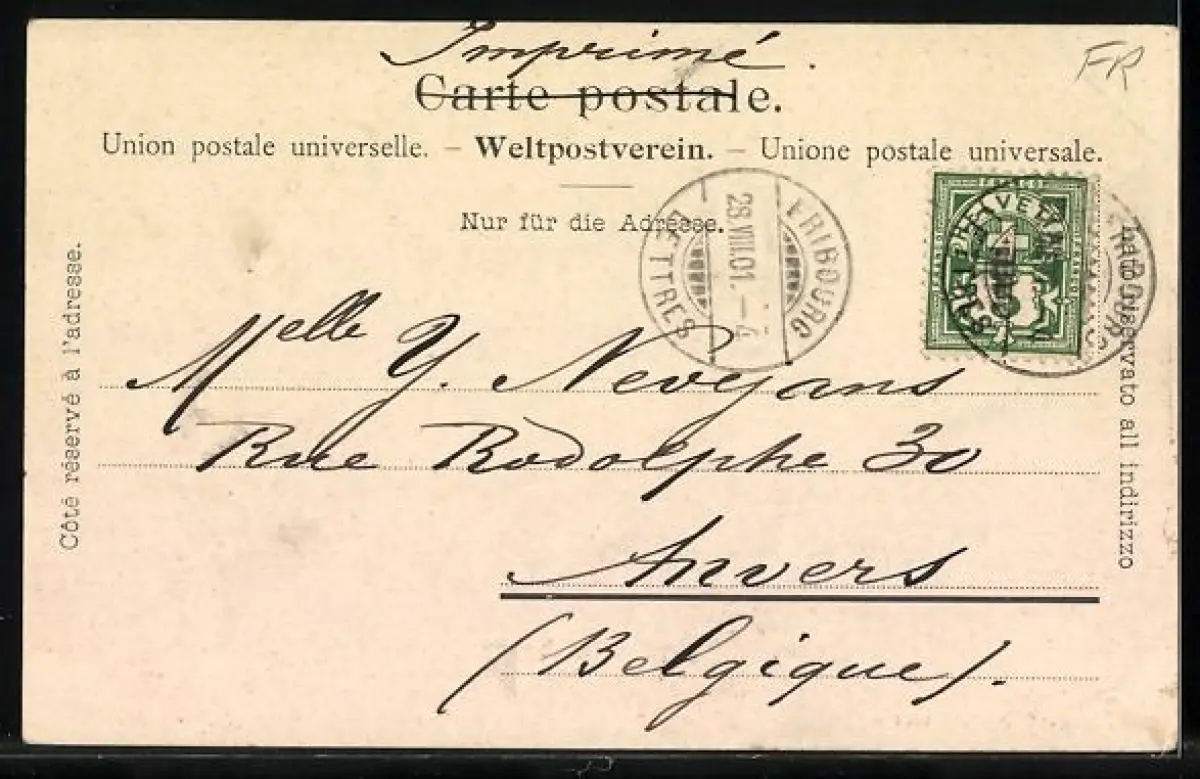 Imprimé.
FR
Carte postale.
Union postale universelle. – Weltpostverein. – Unione postale universale.
Nur für die Adresse.
Côté réservé à l'adresse.
FRIBOURG
28.VIII.01.–4
LETTRES
FRANCO
HELVETIA
lato riservato all indirizzo
Melle Y. Nevejans
Rue Rodolphe 30
Anvers
(Belgique).